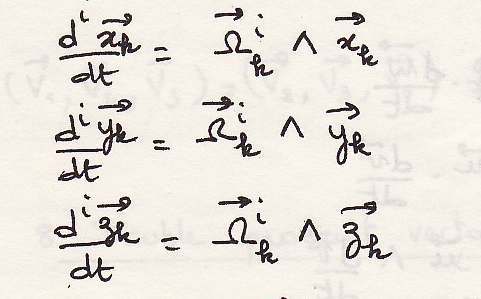 $\frac{d^i \vec{x_k}}{dt} = \vec{\Omega}_k^i \wedge \vec{x}_k$
$\frac{d^i \vec{y_k}}{dt} = \vec{\Omega}_k^i \wedge \vec{y}_k$
$\frac{d^i \vec{z_k}}{dt} = \vec{\Omega}_k^i \wedge \vec{z}_k$